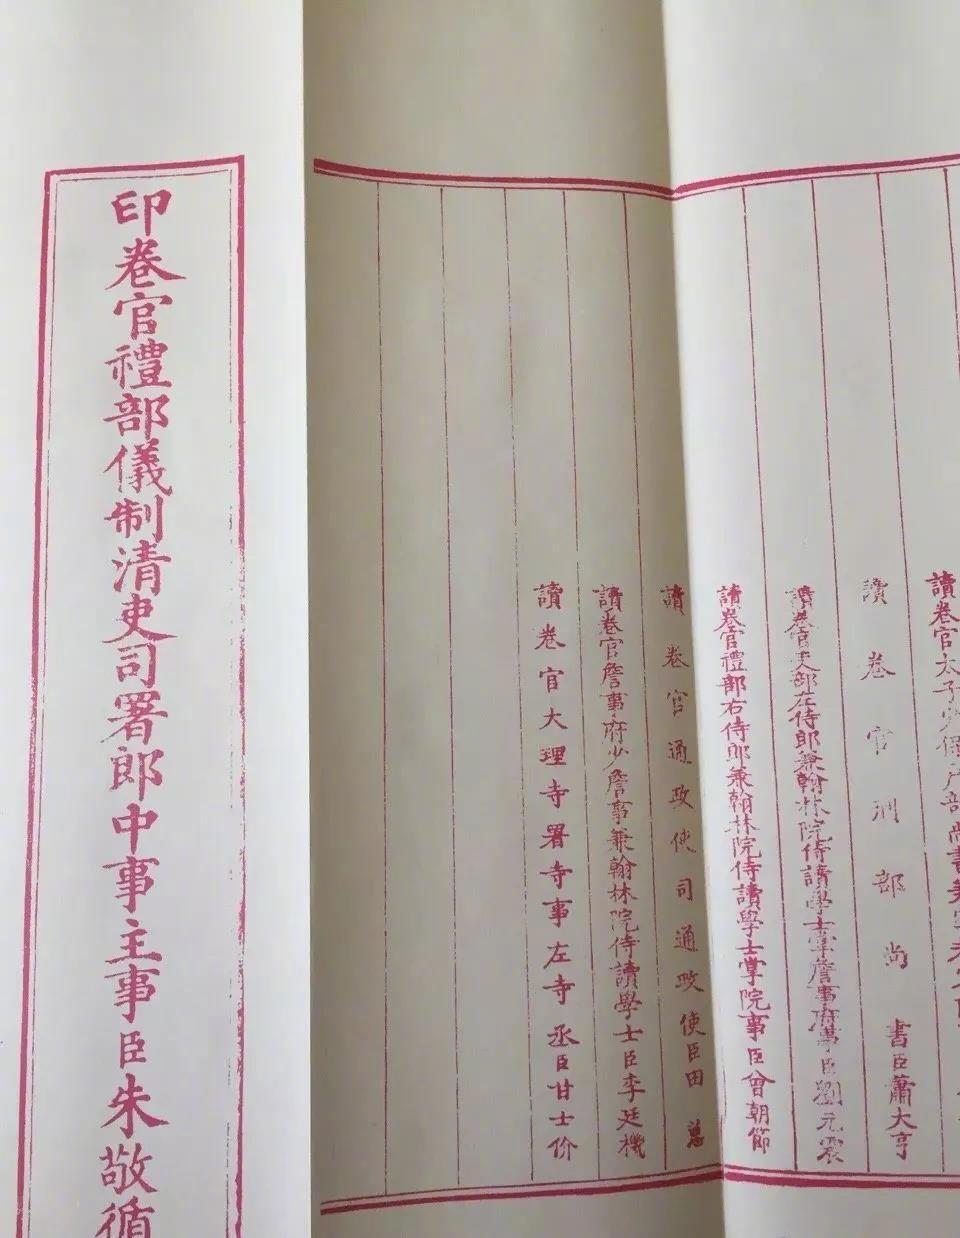 讀卷官太子少保戶部尚書兼
讀卷官刑部尚書臣蕭大亨
讀卷官吏部左侍郎兼翰林院侍讀學士掌詹事府事臣劉元震
讀卷官禮部右侍郎兼翰林院侍讀學士掌院事臣曾朝節
讀卷官通政使司通政使臣田蕙
讀卷官詹事府少詹事兼翰林院侍讀學士臣李廷機
讀卷官大理寺署寺事左寺丞臣甘士价
印卷官禮部儀制清吏司署郎中事主事臣朱敬循